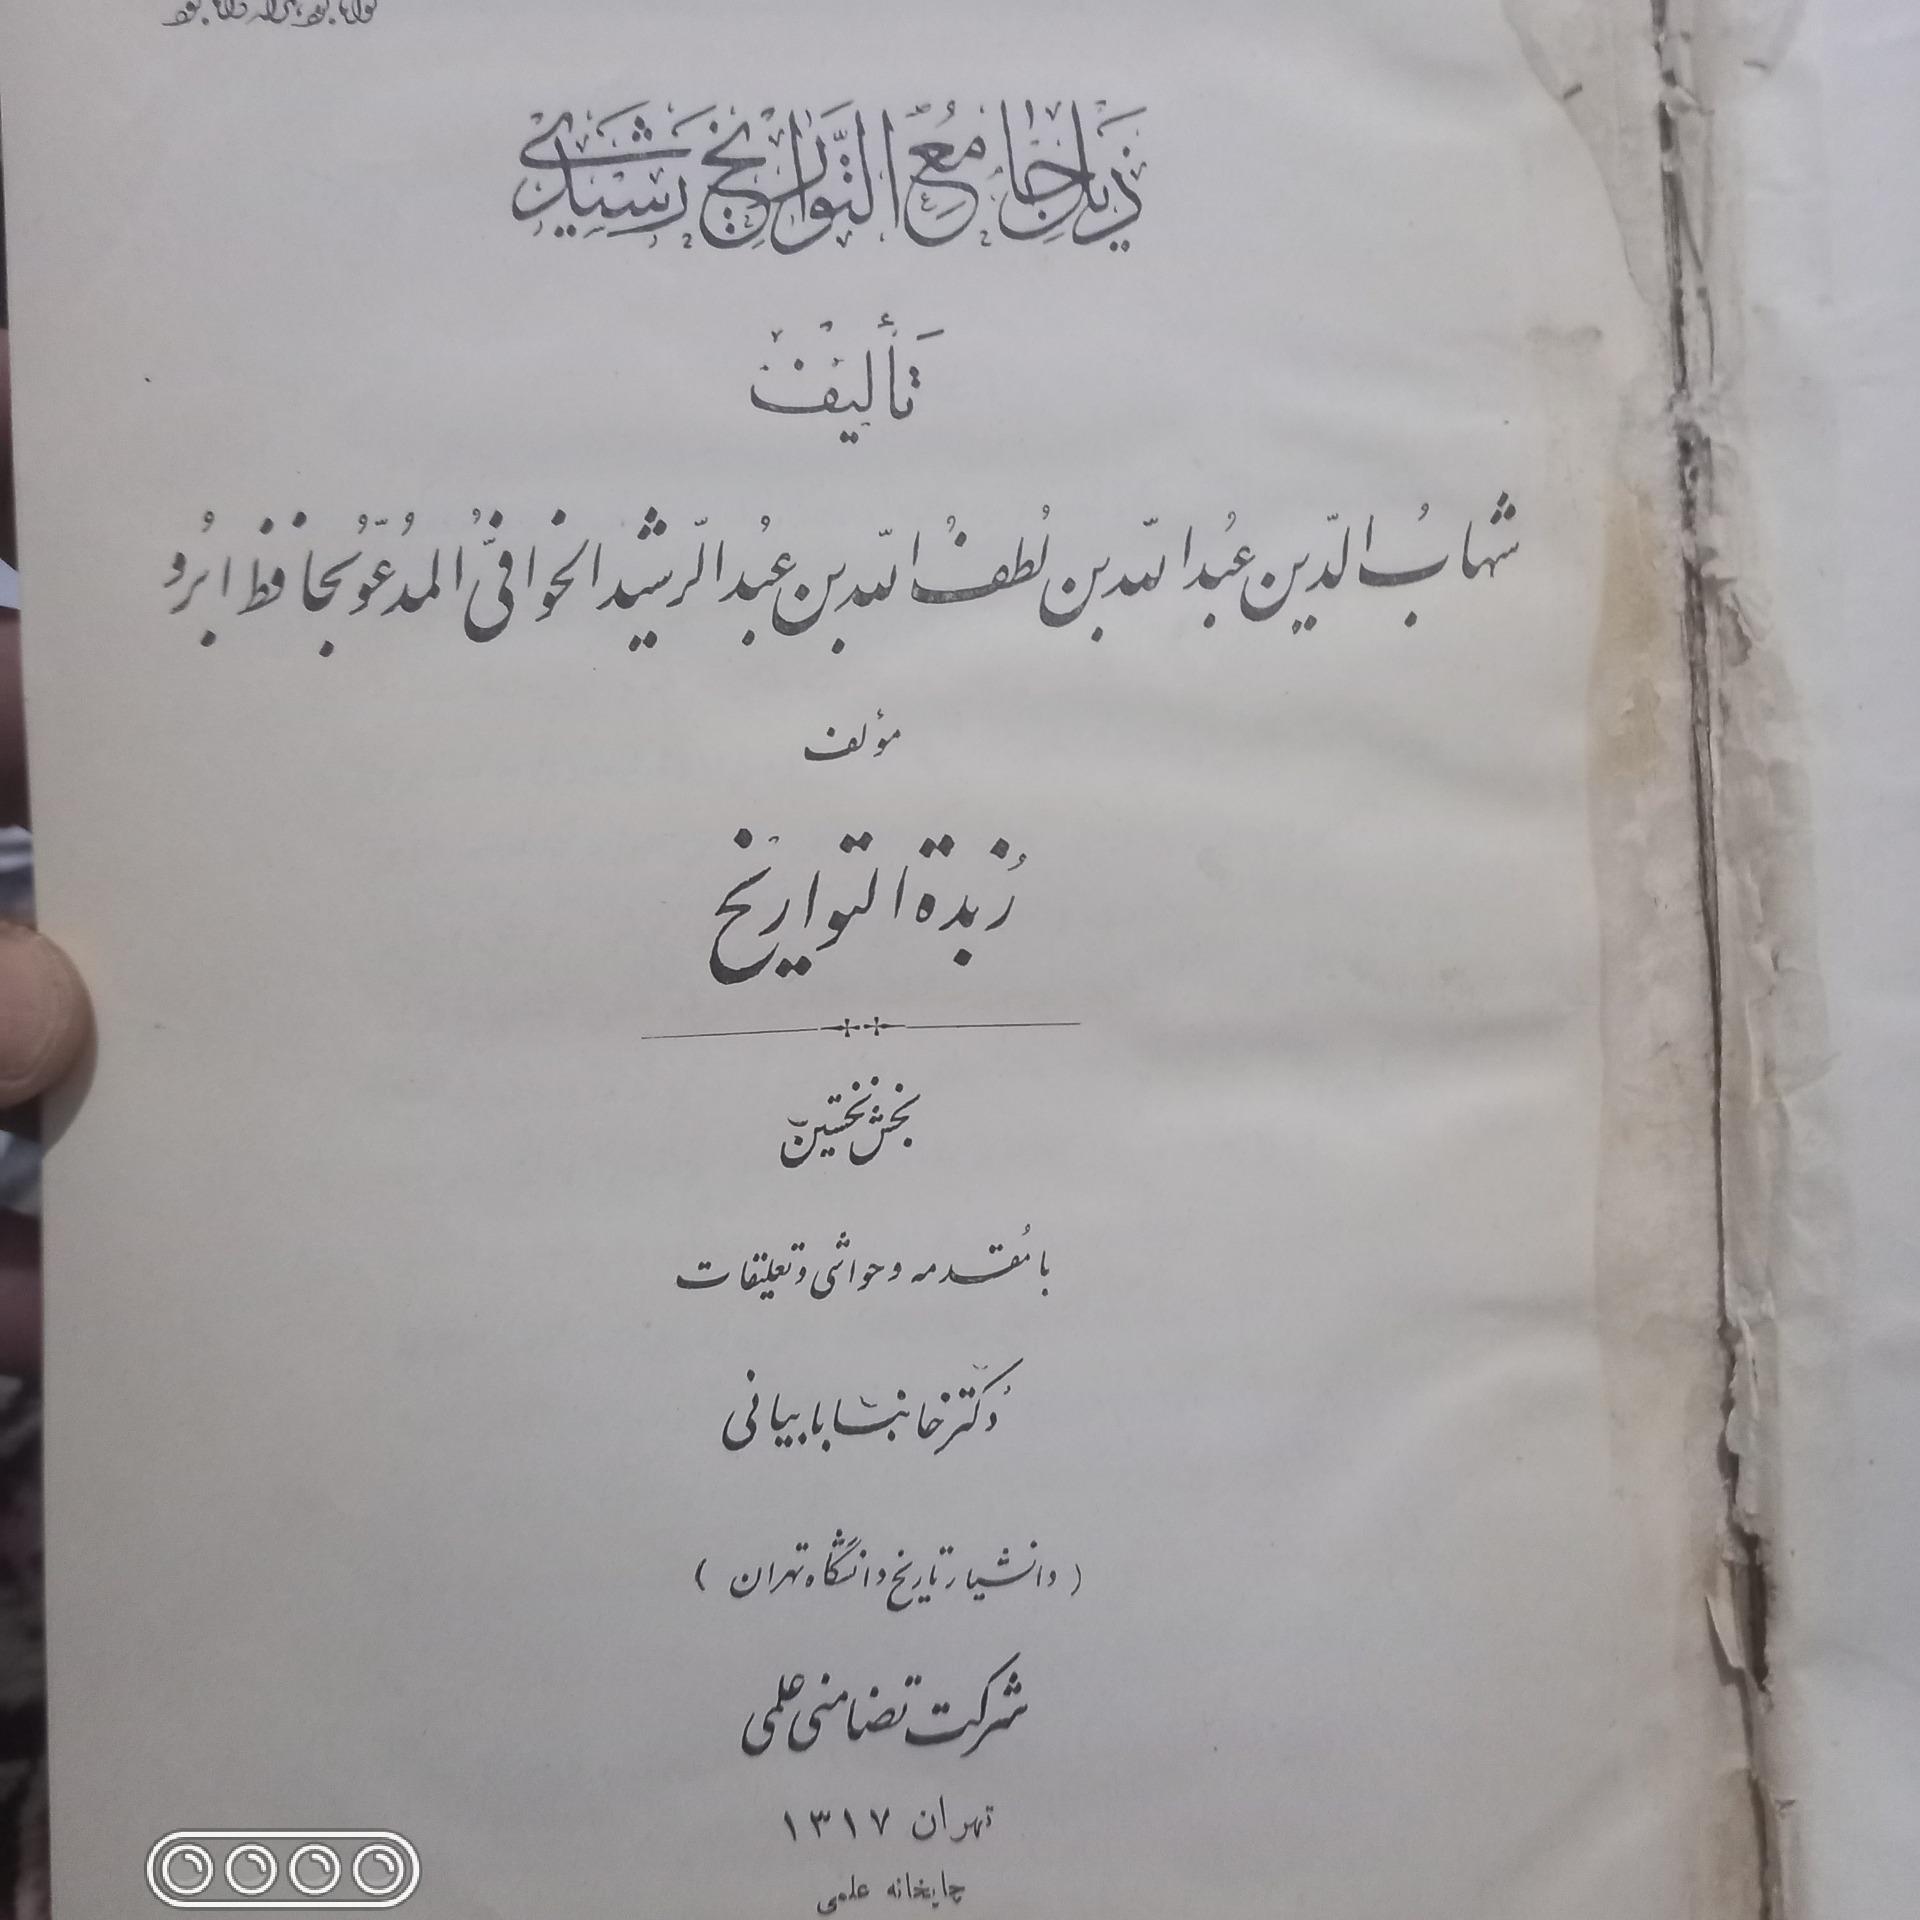 ذَیل جامِعُ التَّواریخِ رَشیدی
تَألیف
شهابُ الدّین عبُدالله بن لُطفُ الله بن عبُدالرّشید الخوافیُّ المدُعّوُ بحافظ ابرُو
مؤلف
زُبدة التواریخ
بخش نخستین
با مُقدمه و حواشی و تعلیقات
دُکتر خانبابا بیانی
( دانشیار تاریخ دانشگاه تهران )
شرکت تضامنی علمی
تهران ۱۳۱۷
چاپخانه علمی